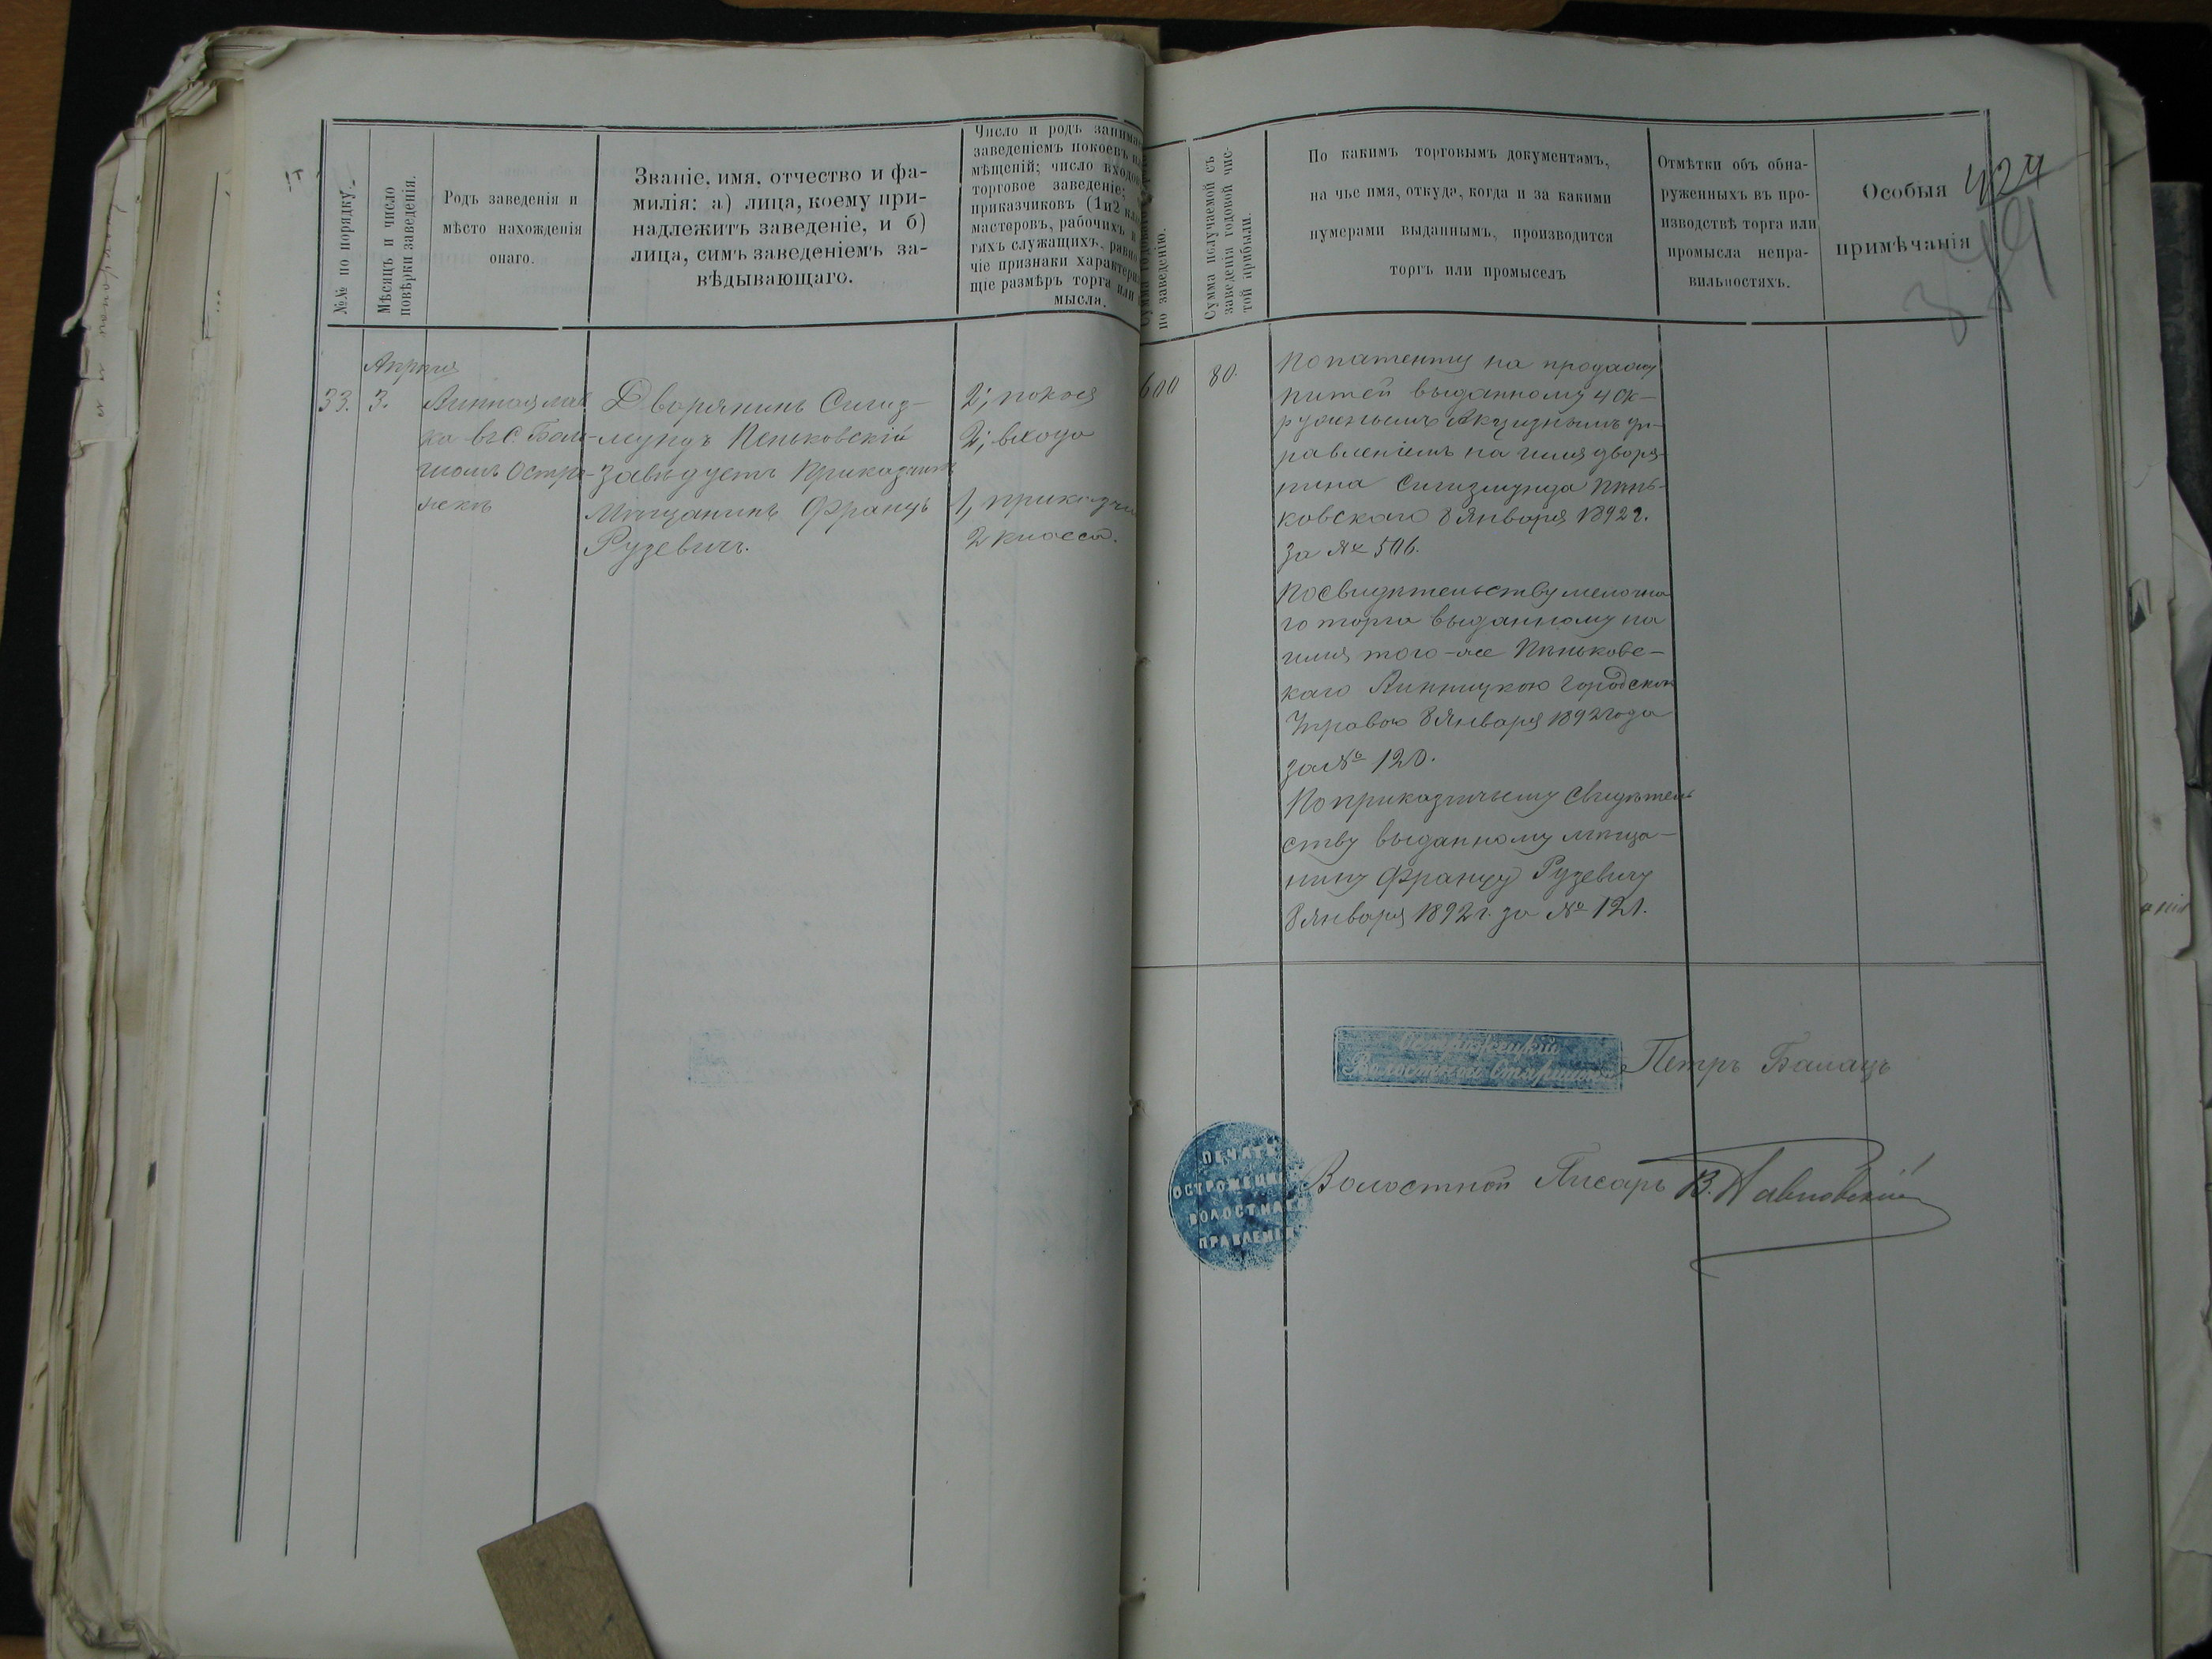 №№ по порядку.
Мѣсяцъ и число
повѣрки заведенія.
Родъ заведенія и
мѣсто нахожденія
онаго.
Званіе, имя, отчество и фа-
милія: а) лица, коему при-
надлежитъ заведеніе, и б)
лица, симъ заведеніемъ за-
вѣдывающаго.
Число и родъ занима
заведеніемъ покоевъ
мѣщеній; число входо
торговое заведеніе;
приказчиковъ (1 и 2
мастеровъ, рабочихъ
гихъ служащихъ, равно
чіе признаки характери
щіе размѣръ торга или
мысла.
по заведенію.
Сумма получаемой съ
заведенія годовой чис-
той прибыли.
По какимъ торговымъ документамъ,
на чье имя, откуда, когда и за какими
нумерами выданнымъ, производится
торгъ или промыселъ
Отмѣтки объ обна-
руженныхъ въ про-
изводствѣ торга или
промысла непра-
вильностяхъ.
Особыя
примѣчанія
424
Апрѣля
33.
3.
ка въ С
Дворянинъ Сигиз-
мундъ Пеньковскій
завѣдуетъ Приказчикъ
Мѣщанинъ Францъ
Рузевичъ.
2; покоя
2; входа
1, приказчи
2 класса.
600
80.
По патенту на продажу
питей выданному 4 Ок-
ружнымъ Акцизнымъ уп-
равленіемъ на имя дворя-
нина Сигизмунда Пень-
ковскаго 8 Января 1892 г.
за № 506.
По свидѣтельству мелочна
го торга выданному на
имя того-же Пеньковс-
каго Липницкою Городскою
Управою 8 Января 1892 года
за № 120.
По приказчичьему свидѣтель
ству выданному мѣща-
нину Францу Рузевичу
8 Января 1892 г. за № 121.
Острожецкій
Волостной Старшина
Петръ Балацъ
ПЕЧАТЬ
ОСТРОЖЕЦК
ВОЛОСТНАГО
ПРАВЛЕНІЯ
Волостной Писарь В. Павловскій